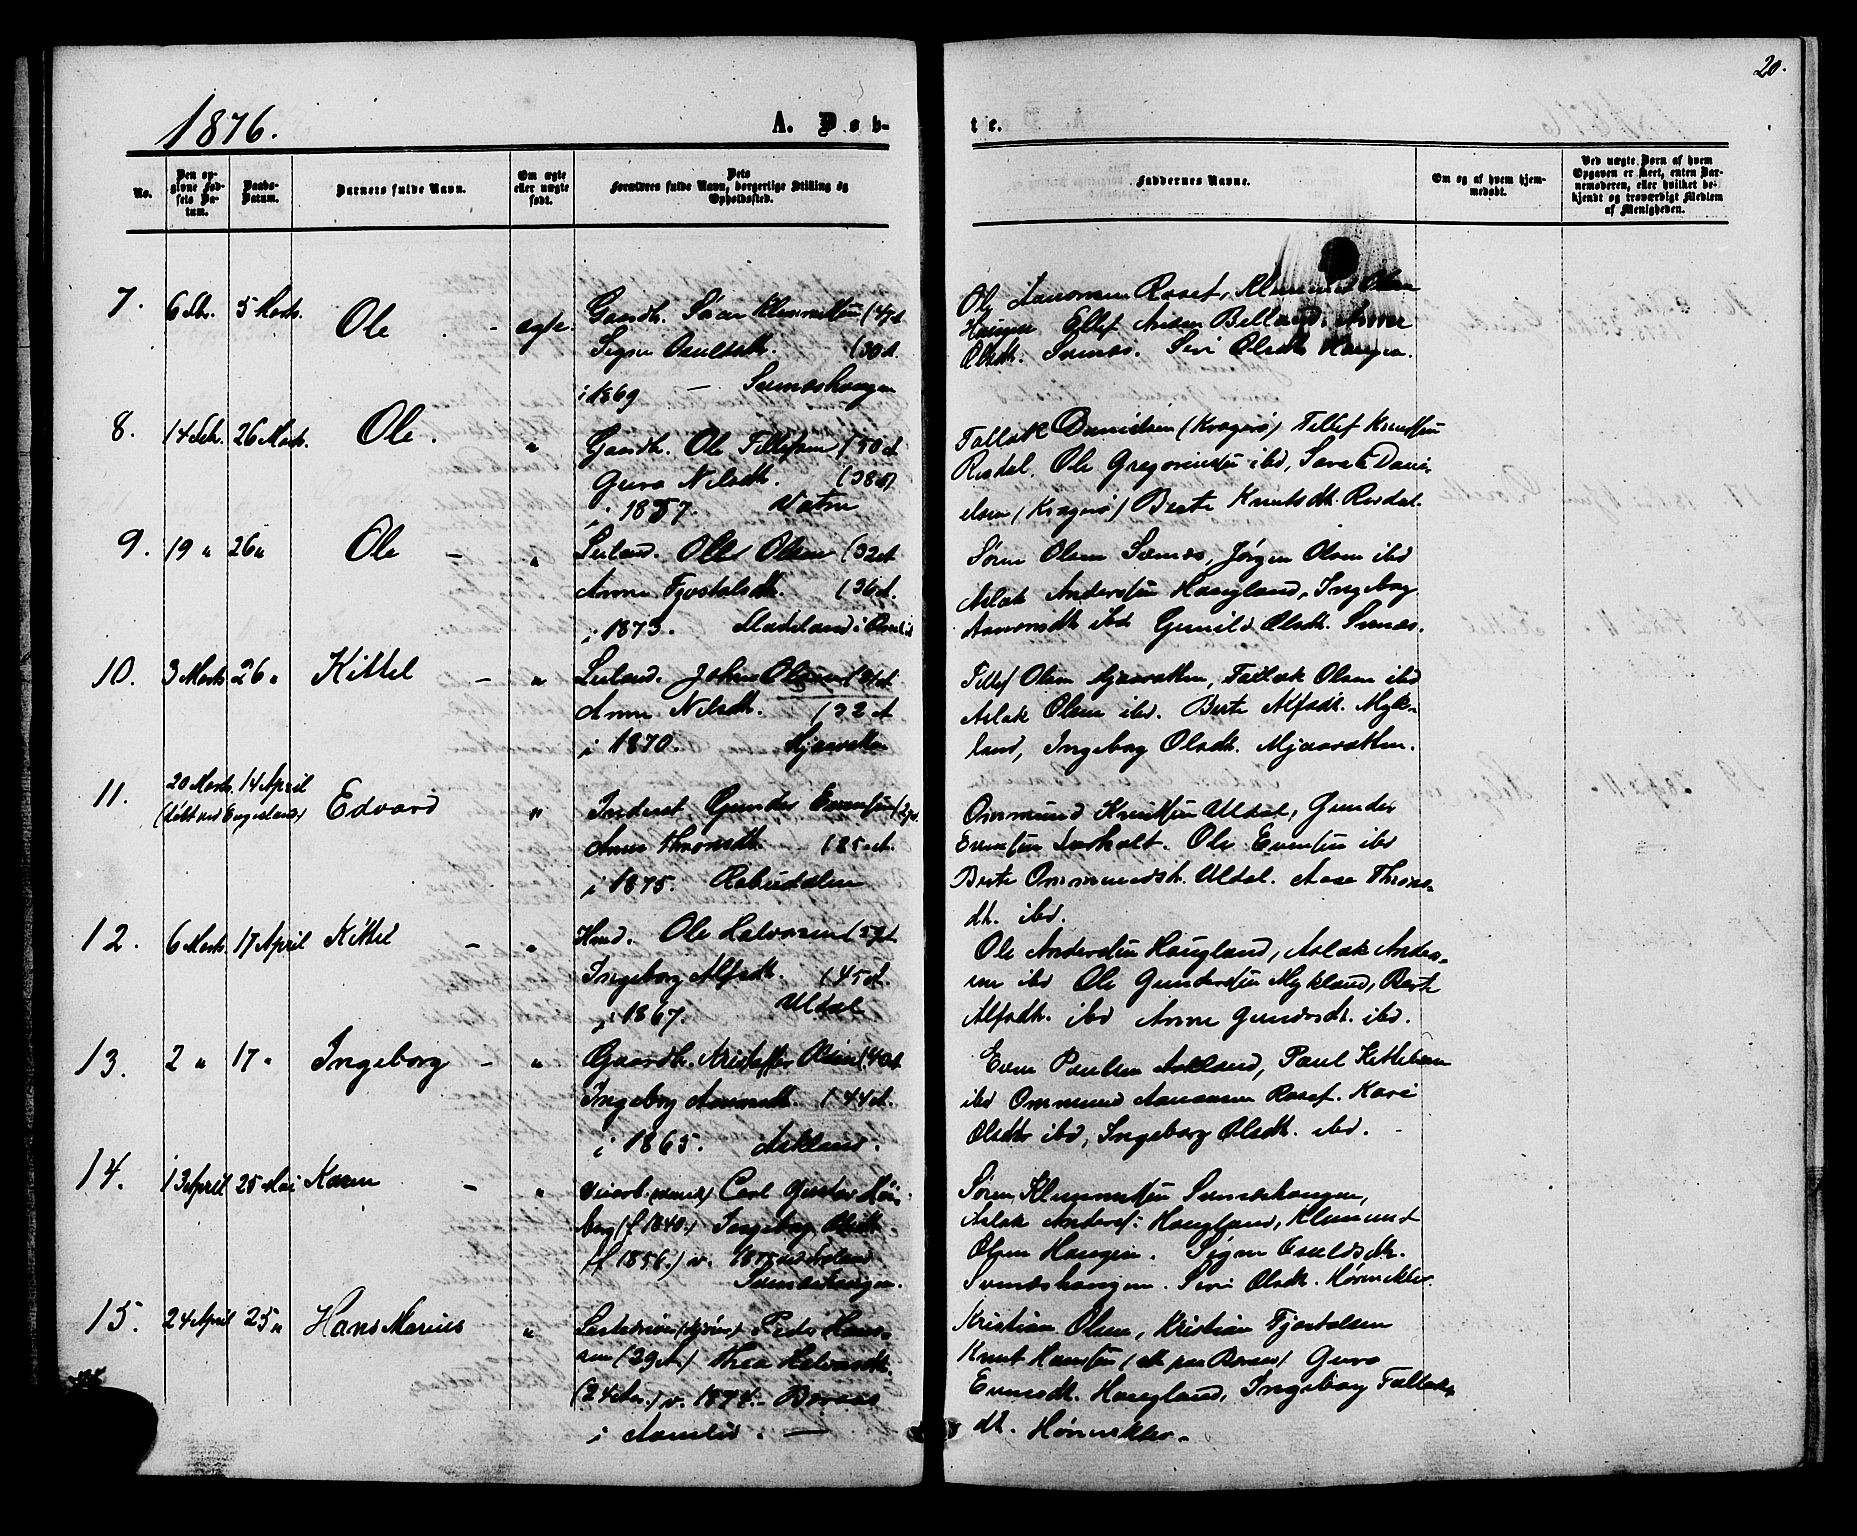 20.
1876.
A. Døb-
te.
No.
Den op-
givne Fød-
sels Da-
tum.
Daabs-
Datum.
Barnets fulde Navn.
Om ægte
eller uægte
født.
Dets
Forældres fulde Navn, borgerlige Stilling og
Opholdssted.
Faddernes Navne.
Om og af hvem hjem-
medøbt.
Ved uægte Børn af hvem
Opgaven er skeet, enten Bar-
nemoderen, eller hvilket be-
kjendt og troværdigt Medlem
af Menigheden.
7.
5 Marts.
Ole
ægte.
Gaardb. Søren
Signe Osuldsdt.
i 1869 — Svenæshaugen
Ole Aanonsen
Haugen
Olsdt. Svenæs. Siri Olsdt. Haugen.
8.
14 Feb. 26 Marts.
Ole.
"
Gaardb. Ole Tellefsen (50 A
Guro Nilsdt. (38
i 1857. Vatne
Tallak Danielsen (Kragerø) Tellef Knutsen
Risdal. Ole Gregoriussen ibd, Sara Dani-
elsen (Kragerø) Berte Knutsdt. Risdal.
9.
19 " 26 "
Ole
"
Leiland. Olsen (32 A
Anne Tjostolsdt. (36 A.
i 1873. i Omlid
Søren Olsen Svenæs, Jørgen Olsen ibd
Aslak Andersen Haugland, Ingeborg
Aanonsdt ibd Gunild Olsdt. Svenæs.
10.
3 Marts 26 "
Kittel
"
Leiland. John Olsen
Anne Nilsdt. (32 A
i 1870. Mjaavatten
Tellef Olsen Mjaavatten, Tallak Olsen ibd
Aslak Olsen ibd. Berte Alfsdt. Myk-
land, Ingeborg Olsdt. Mjaavatten.
11.
20 Marts. 14 April
(døbt ved Engesland)
Edvard
"
Inderst Gunder Evensen
Anne Thronsdt.
i 1875. Rabudalen
Ommund Knutsen Uldal, Gunder
Evensen Ole Evensen ibd
Berte Ommundsdt. Uldal. Aase Throns-
dt. ibd.
12.
6 Marts. 17 April
Kittel
"
Husmd. Ole Halvorsen
Ingeborg Alfsdt. (45 A.
i 1867. Uldal
Ole Andersen Haugland, Aslak Anders-
sen ibd Ole Gundersen Mykland, Berte
Alfsdt. ibd Anne Gundersdt. ibd.
13.
2 " 17 "
Ingeborg
"
Gaardb. Kristoffer Olsen (40 A
Ingeborg Aanonsdt. (44 A.
i 1865. Askland.
Even Paulsen Askland, Paul Kittelsen
ibd Ommund Aanonsen Kari
Olsdt ibd, Ingeborg Olsdt. ibd.
14.
13 April 25 Mai
Karen
"
Carl Gustav
berg (f 1840.) Ingeborg Olsdt.
(f 1856.) v. 1875
Svenæshaugen.
Søren Klemmetsen Svenæshaugen,
Aslak Anders: Haugland, Klemmet
Olsen Haugen. Signe Osuldsdt.
Svenæshaugen. Siri Olsdt. Hørnekleo.
15.
24 April 25 "
Hans Marius
"
Peder Han-
sen (29 A.) Thea Halvorsdt.
(24 Aar.) v. 1874. Boraas
i Aamlid. —
Kristian Olsen, Kristian Tjostolsen
Knut Hansen Boraas) Guro
Evensdt. Haugland, Ingeborg Tallaks-
dt. Hørnekleo.